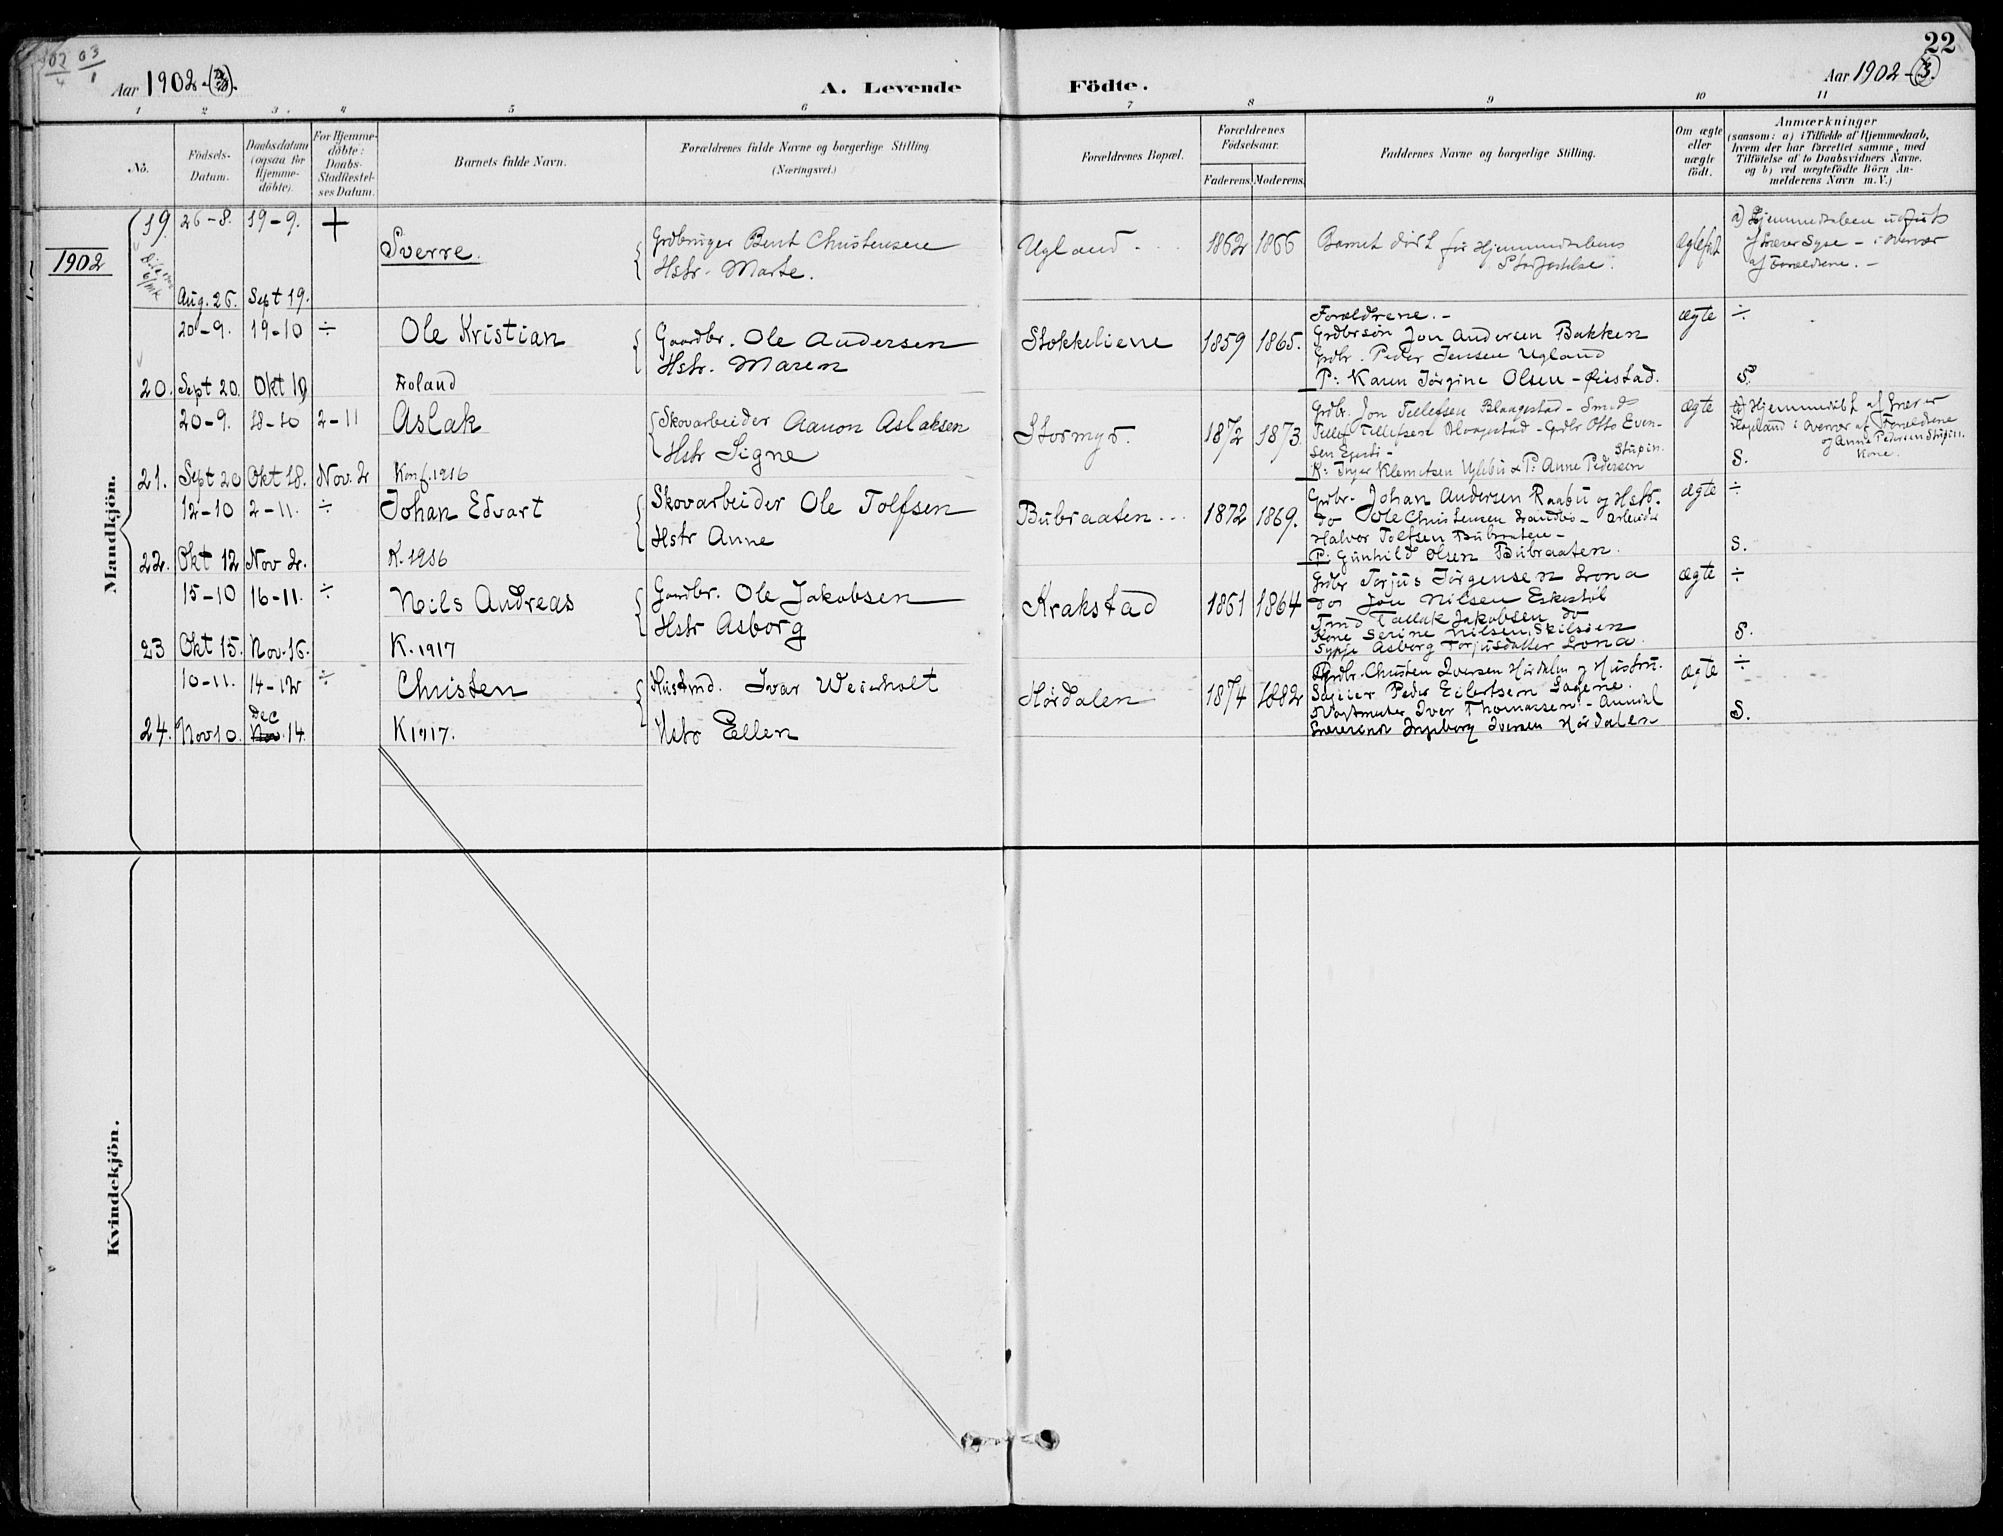 02/4 03/1
Aar 1902
A. Levende Födte.
Aar 1902
22
1 2 3. 4 5 6 7 8 9 10 11
No.
Födsels-Datum.
Daabsdatum (ogsaa for Hjemme-döbte).
For Hjemme-döbte: Daabs-Stadfæstel-ses Datum.
Barnets fulde Navn.
Forældrenes fulde Navne og borgerlige Stilling (Næringsvei.)
Forældrenes Bopæl.
Forældrenes Födselsaar.
Faderens. Moderens.
Faddernes Navne og borgerlige Stilling.
Om ægte eller uægte födt.
Anmærkninger
(saasom: a) i Tilfælde af Hjemmedaab, hvem der har forrettet samme, med Tilföielse af to Daabsvidners Navne. og b) ved uægtefödte Börn An-melderens Navn m. V.)
Mandkjön.
1902
19. 26-8. 19-9. +
Sverre.
Grdbruger Bent Christensen
Hstr. Marte.
Ugland 1862 1866
Barnet død før Hjemmedaabens
Stadfæstelse.
a) Hjemmedaaben udført
af Lærer Syse - i Overvær
af Forældrene. -
Aug. 26. Sept 19.
20-9. 19-10 ÷
Ole Kristian
Gaardbr. Ole Andersen
Hstr. Maren
Stokkeliene 1859 1865.
Forældrene. -
Grdbrsøn Jon Andersen Bakken
Grdbr. Peder Jensen Ugland
P: Karen Jørgine Olsen - Øiestad.
ægte ÷
S.
20. Sept 20. Okt 19
Froland
20-9. 18-10 2-11
Aslak
Skovarbeider Aanon Aslaksen
Hstr Signe
Stormyr. 1872 1873
Grdbr. Jon Tellefsen Blaagestad - Smed
Tellef Tellefsen Blaagestad - Grdbr Otto Even-
sen
K: Inger Klemetsen Uglebu & P: Anne Pedersen
Stupin.
ægte
a) Hjemmedøbt af Lærer
Hageland i Overvær af Forældrene
og Anne Pedersen Stupin.
Kone.
S.
21. Sept 20 Okt 18. Nov. 2
Konf. 1916
12-10 2-11. ÷
Johan Edvart
Skovarbeider Ole Tolfsen
Hstr Anne
Bubraaten 1872 1869.
Grdbr. Johan Andersen Raabu og Hstr.
do Ole Christensen - Arbeider
Halvor Tolfsen Bubraaten -
P: Gunhild Olsen Bubraaten.
ægte ÷
S.
22. Okt 12 Nov 2.
K. 1916
15-10 16-11. ÷
Nils Andreas
Gaardbr. Ole Jakobsen
Hstr Asborg
Krakstad 1861 1864
Grdbr Torjus Jørgensen Lona
do Jon Nilsen Eskestøl
Tmd Tallak Jakobsen do
Kone Serine Nilsen, Skilsøen
Sypje Asborg Torjusdatter Lona.
ægte ÷
S.
23 Okt 15. Nov. 16.
K. 1917
10-11. 14-12 ÷
Christen
Husmd. Ivar Weierholt
Hstr Ellen
Hørdalen 1874 1882
Grdbr. Christen Iversen Hørdalen og Hustru.
Sagjier Peder Eilertsen Sagene.
Iver Thomassen - Arendal
Ingeborg Iversen Hørdalen
ægte ÷
S.
24. Nov 10. Dec 14.
K 1917.
Kvindekjön.